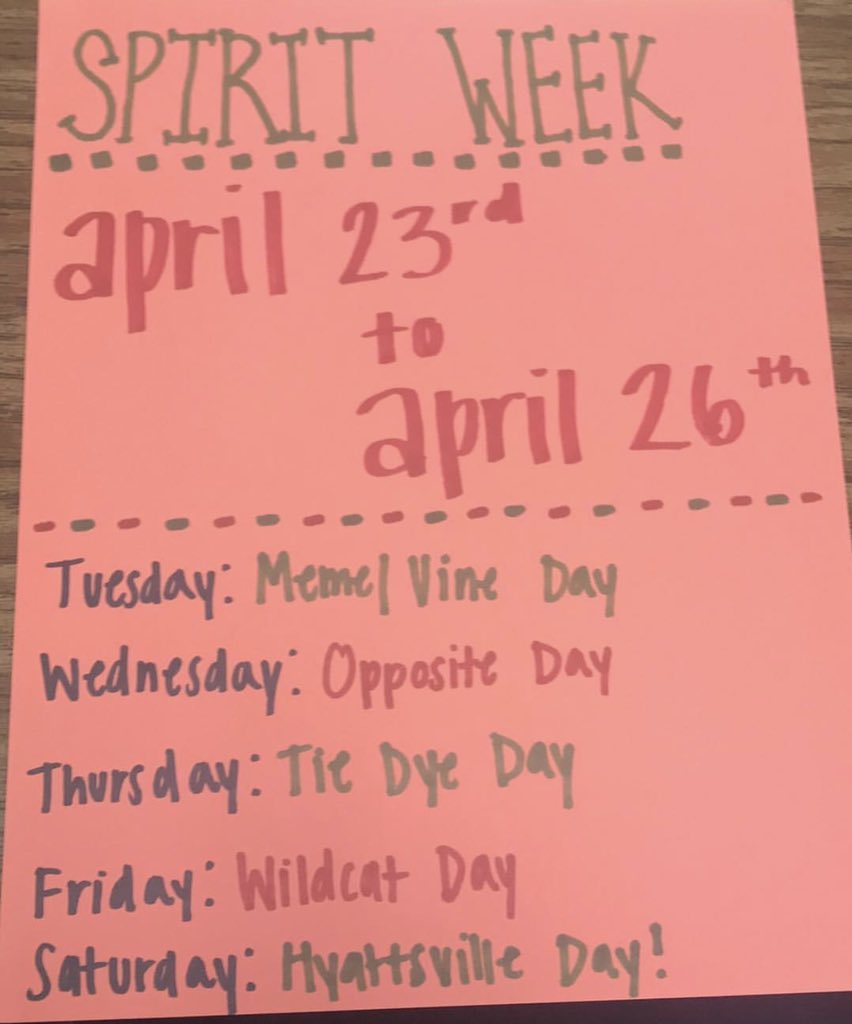 SPIRIT WEEK
april 23rd
to
april 26th
Tuesday: Meme/Vine Day
Wednesday: Opposite Day
Thursday: Tie Dye Day
Friday: Wildcat Day
Saturday: Hyattsville Day!